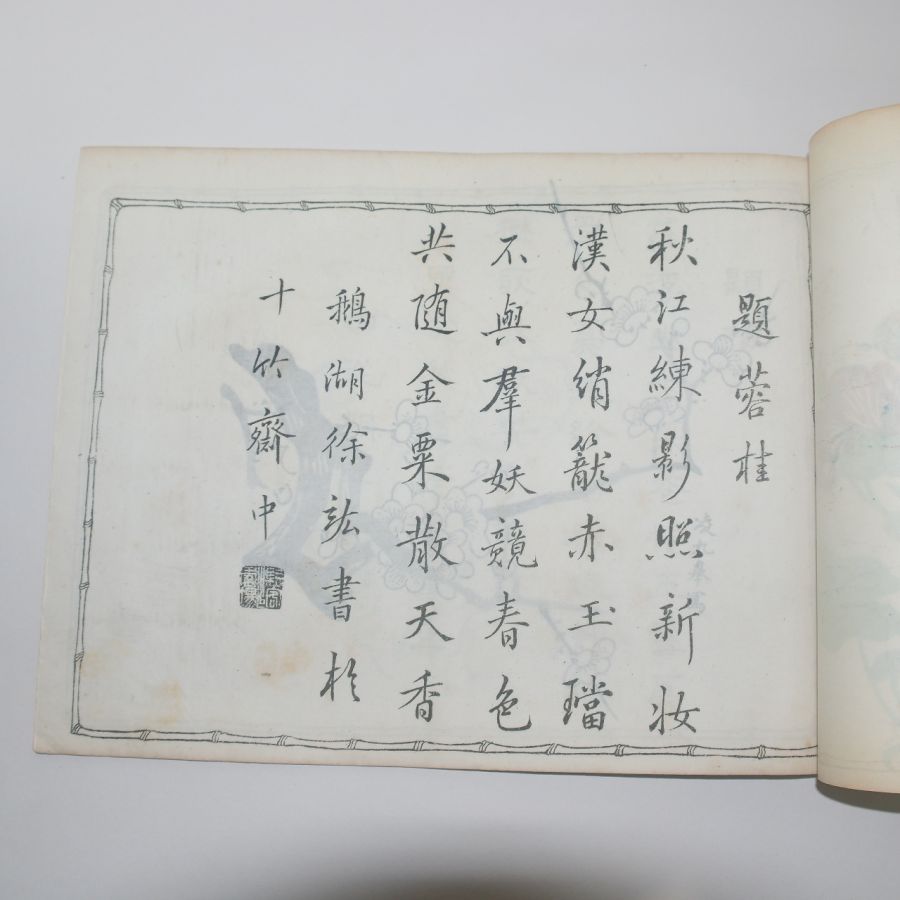 題蓉桂
秋江練影照新妝
漢女綃籠赤玉璫
不與羣妖競春色
共随金粟散天香
鵝湖徐竑書於
十竹齋中